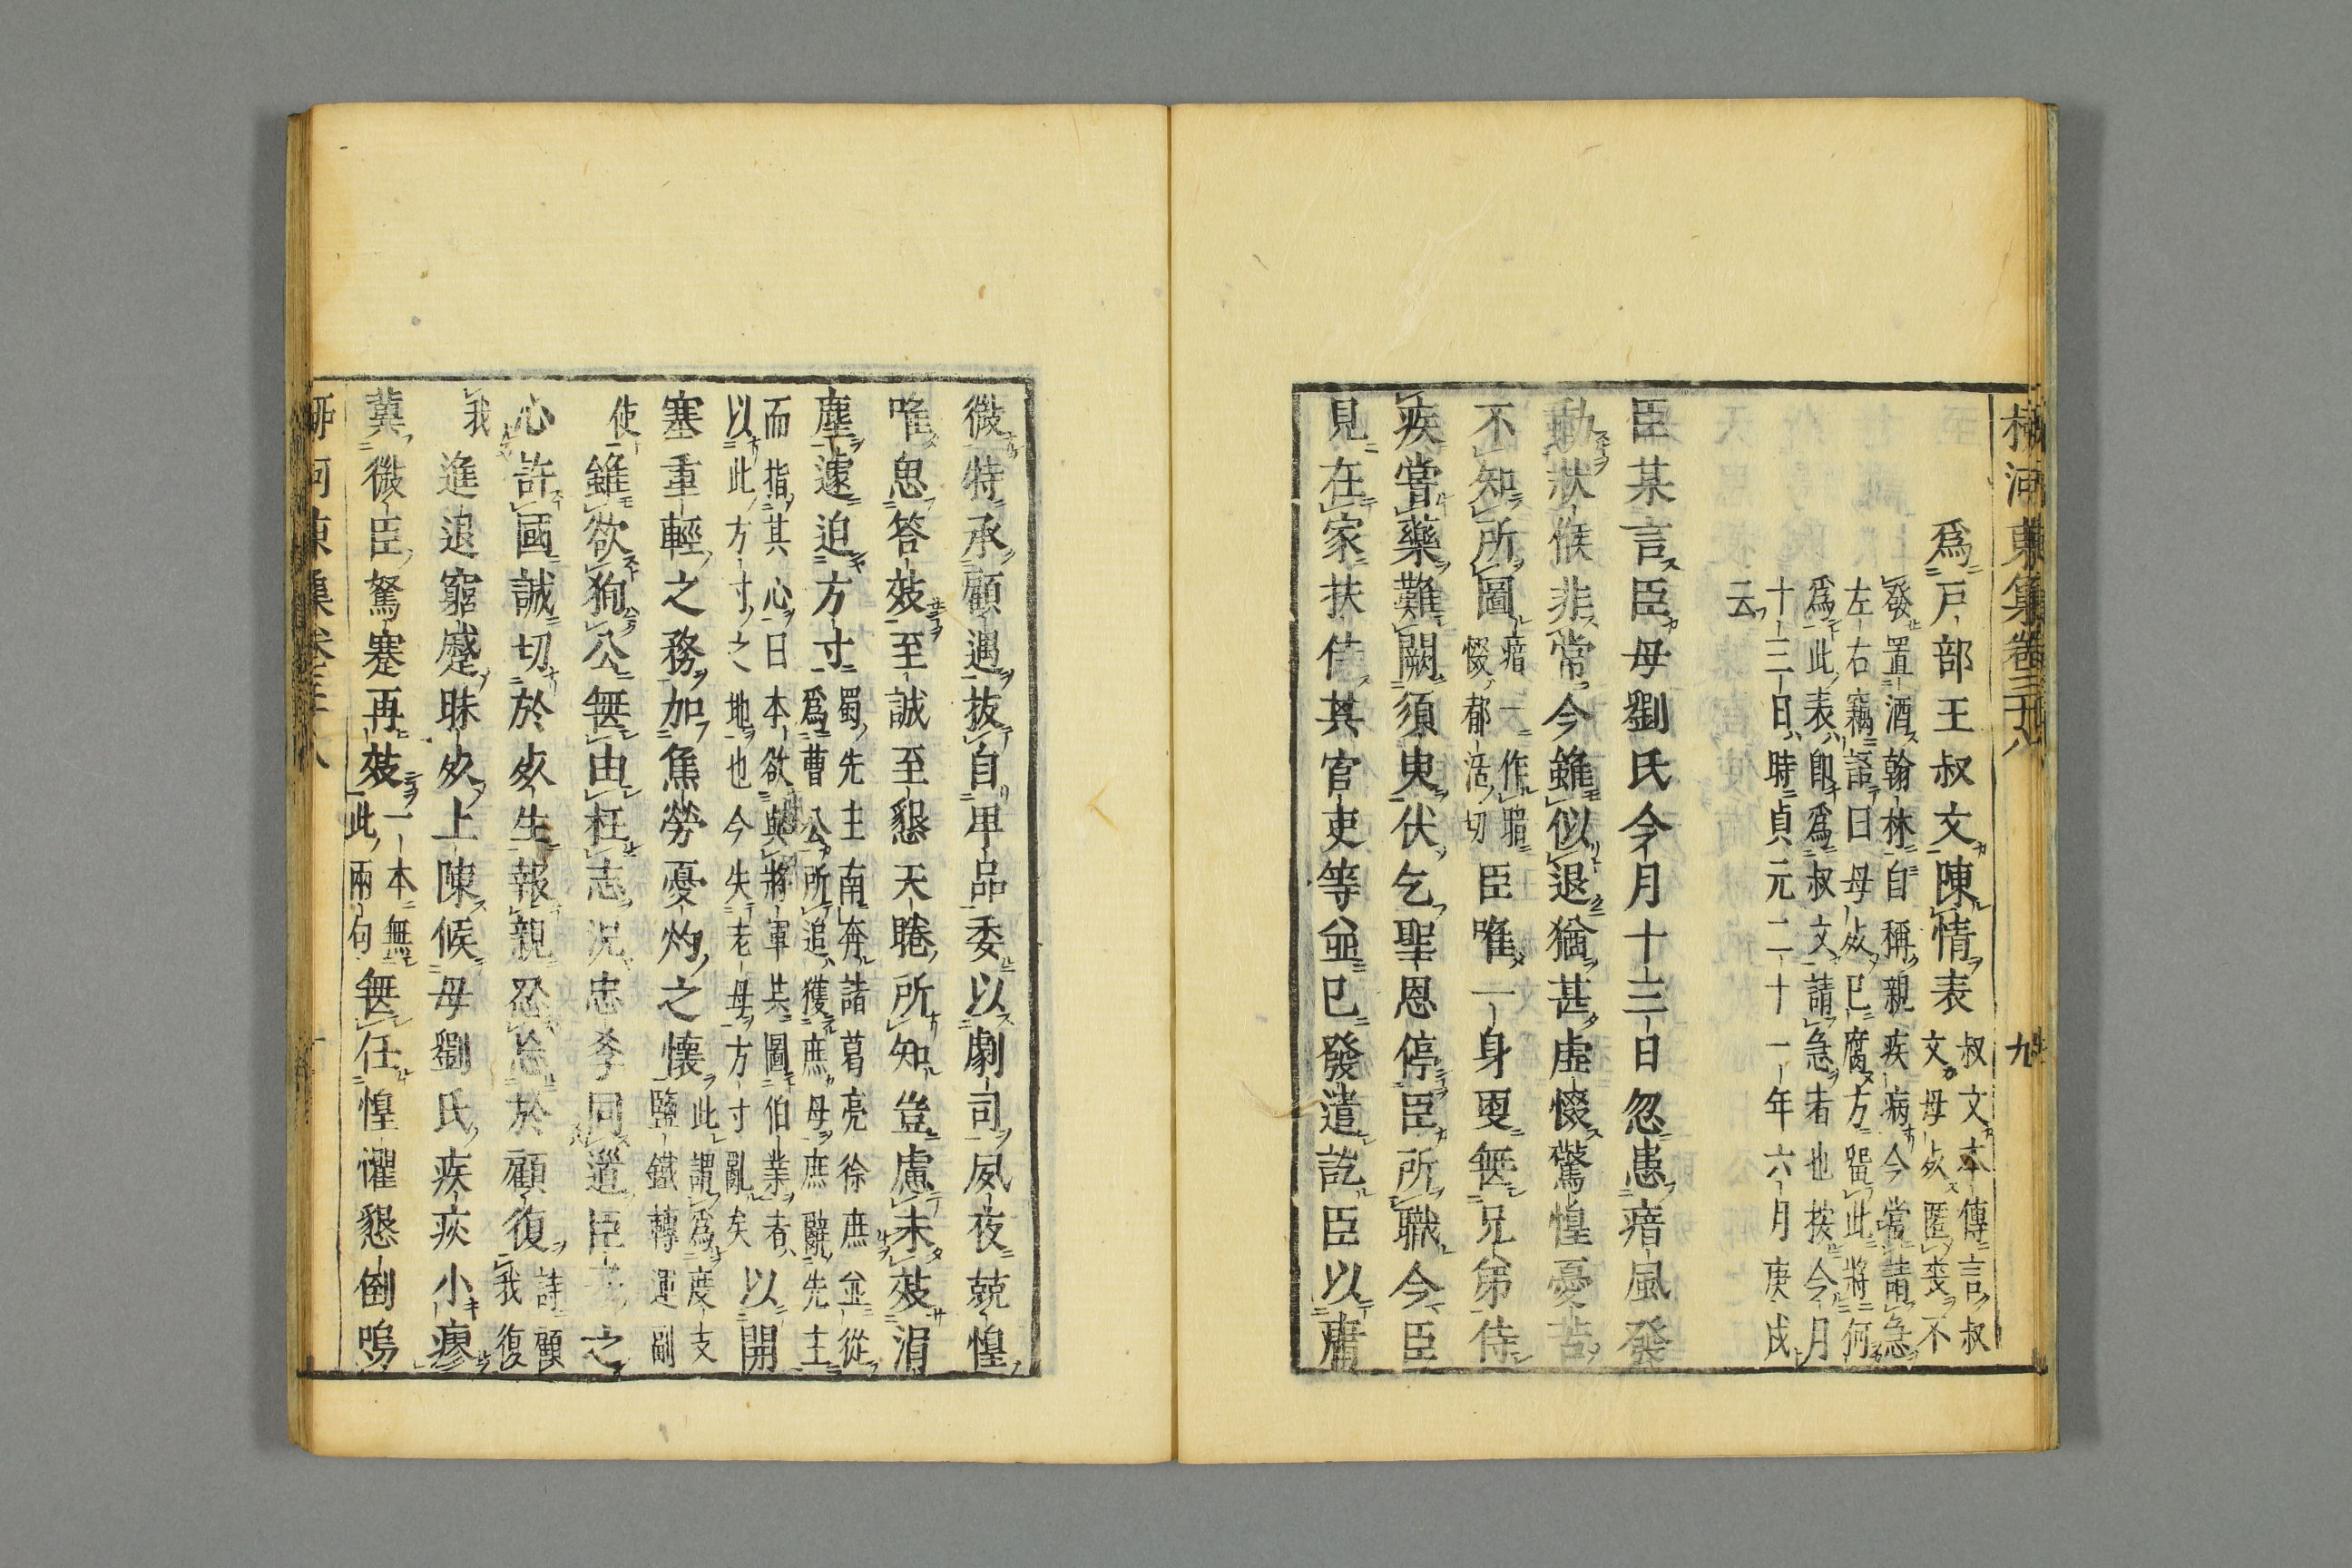 柳河東集卷三十八 九
爲戸部王叔文陳情表
叔文本傳言叔
文母死匿喪不
發置酒翰林自稱親疾病今當請急
左右竊語曰母死已腐方畱此將何
爲此表卽爲叔文請急者也按今月
十三日時貞元二十一年六月庚戌
云
臣某言臣母劉氏今月十三日忽患瘖風發
動狀候非常今雖似退猶甚虛惙驚惶憂苦
不知所圖
瘖一作暗
惙都活切
臣唯一身更無兄弟侍
疾嘗藥難闕須臾伏乞聖恩停臣所職今臣
見在家扶侍其官吏等並已發遣訖臣以庸
微特承顧遇拔自卑品委以劇司夙夜兢惶
唯思答效至誠至懇天睠所知豈慮未效涓
塵遽迫方寸
蜀先主南奔諸葛亮徐庶並從
爲曹公所追獲庶母庶辭先主
而指其心曰本欲與將軍共圖伯業者
以此方寸之地也今失老母方寸亂矣
以開
塞重輕之務加焦勞憂灼之懷
此謂爲度支
鹽鐵轉運副
使
雖欲狥公無由枉志況忠孝同道臣之
心許國誠切於死生報親忍忘於顧復
詩顧
我復
我
進退窮蹙昧死上陳候母劉氏疾疢小瘳
冀微臣駑蹇再效
一本無
此兩句
無任惶懼懇倒嗚